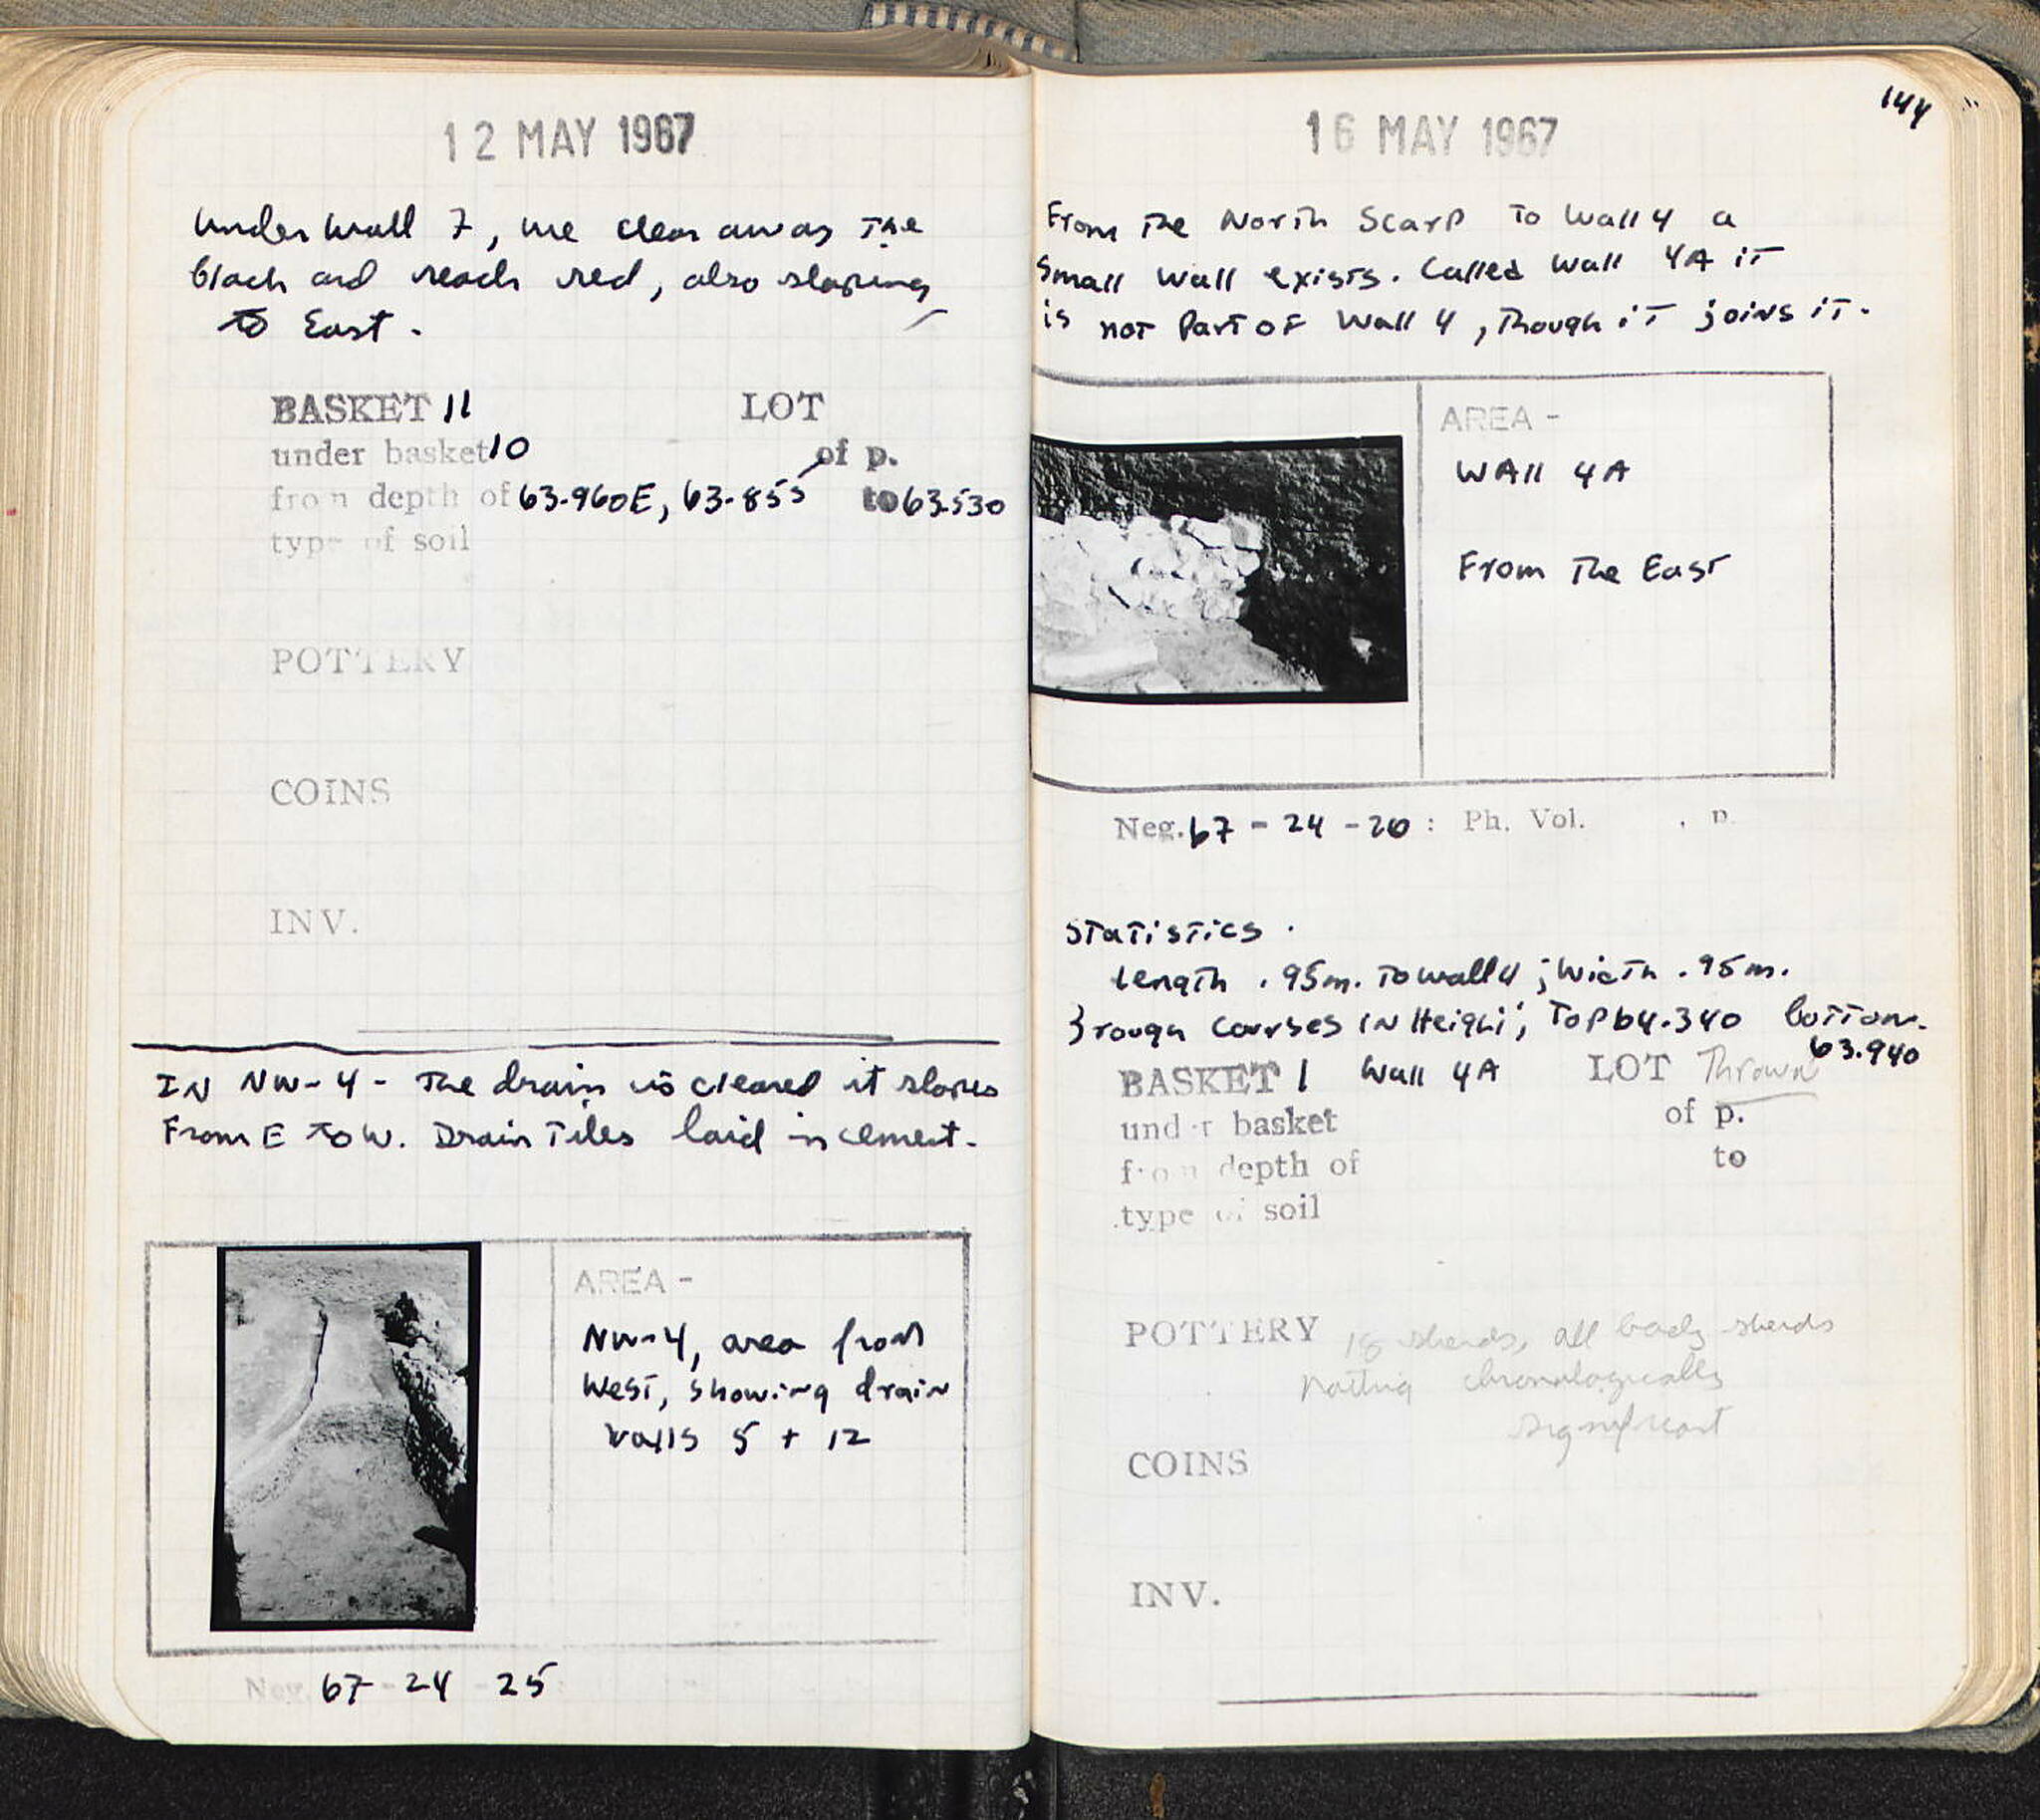 12 MAY 1967
Under Wall 7, we clear away the
black and reach red, also sloping
to East.
BASKET 11 LOT
under basket 10 of p.
from depth of 63.960E, 63.855 to 63.530
type of soil
POTTERY
COINS
INV.
IN NW-4 - The drain is cleared it slopes
From E to W. Drain Tiles laid in cement.
AREA -
NW-4, area from
West, showing drain
walls 5 + 12
Neg. 67-24-25
144
16 MAY 1967
From the North Scarp to Wall 4 a
small wall exists. Called Wall 4A it
is not part of Wall 4, though it joins it.
AREA -
WAll 4A
From the East
Neg. 67-24-26: Ph. Vol. , p.
Statistics.
Length .95m. to wall 4; Width .95m.
3 rough courses in Height; Top 64.340 bottom.
63.940
BASKET 1 Wall 4A LOT Thrown
under basket of p.
from depth of to
type of soil
POTTERY 18 sherds, all body sherds
nothing chronologically
significant
COINS
INV.